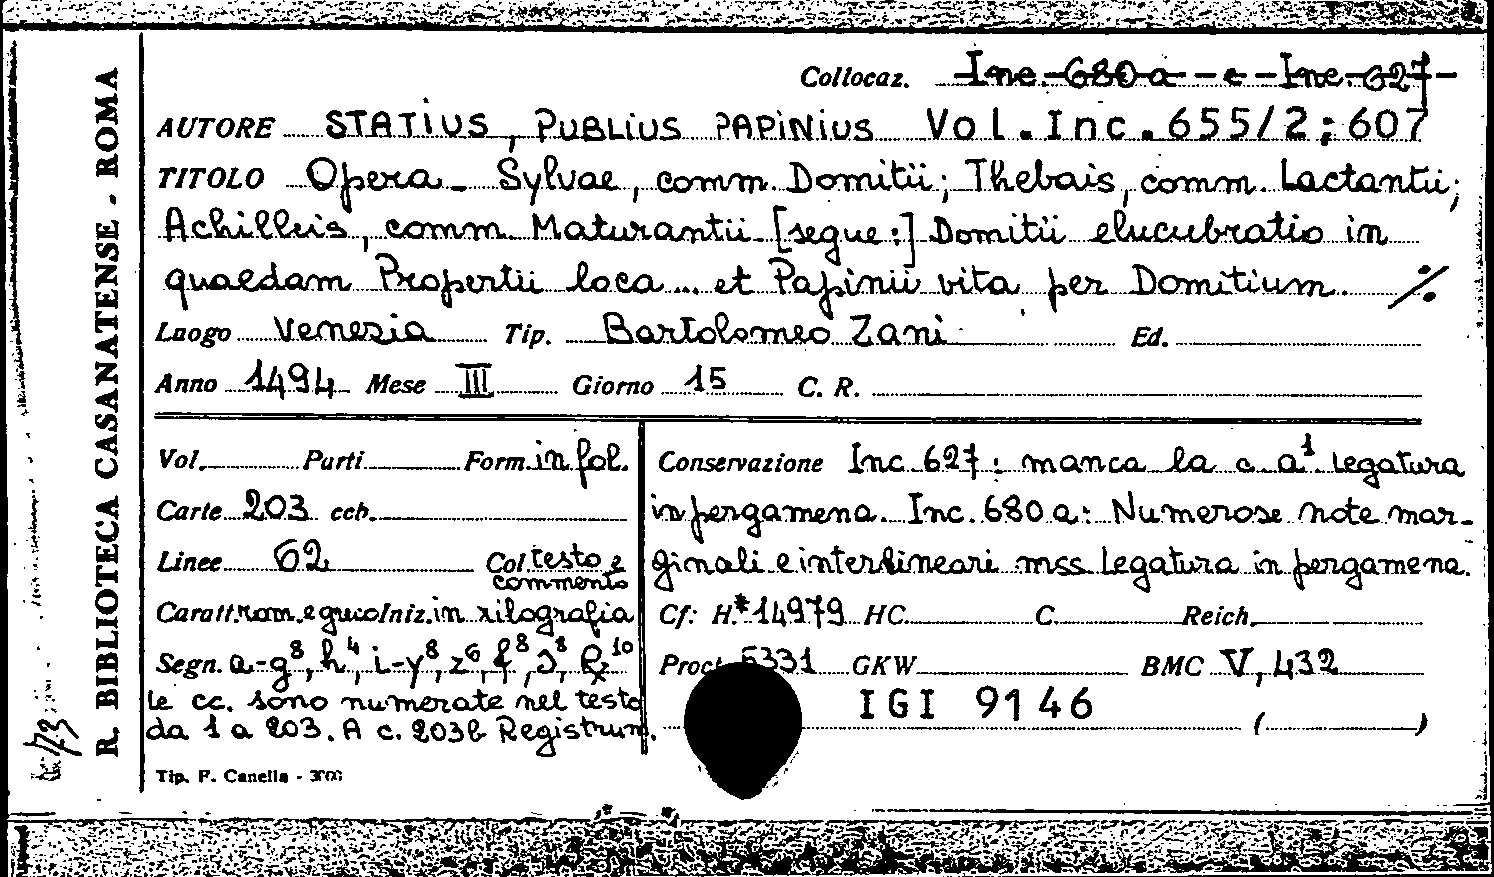 R. BIBLIOTECA CASANATENSE - ROMA
Collocaz. Inc. 680 a - e - Inc. 627
AUTORE STATIUS, PUBLIUS PAPINIUS Vol. Inc. 655/2; 607
TITOLO Opera - Sylvae, comm. Domitii; Thebais, comm. Lactantii;
Achilleis, comm. Maturantii [segue:] Domitii elucubratio in
quaedam Propertii loca... et Papinii vita per Domitium. ./.
Luogo Venezia Tip. Bartolomeo Zani Ed.
Anno 1494 Mese III Giorno 15 C. R.
Vol. Parti Form. in fol.
Carte 203 ccb.
Linee 62 Col. testo e
commento
Caratt. rom. e greco Iniz. in xilografia
Segn. a-g⁸, h⁴, i-y⁸, z⁶, &⁸, ɔ⁸, ꝶ¹⁰
le cc. sono numerate nel testo
da 1 a 203. A c. 203b Registrum.
Conservazione Inc 627: manca la c. a¹ legatura
in pergamena. Inc. 680 a: Numerose note mar-
ginali e interlineari mss legatura in pergamena.
Cf: H.*14979 HC. C. Reich.
Proct. 5331 GKW BMC V, 432
IGI 9146 ( )
Tip. F. Canella -